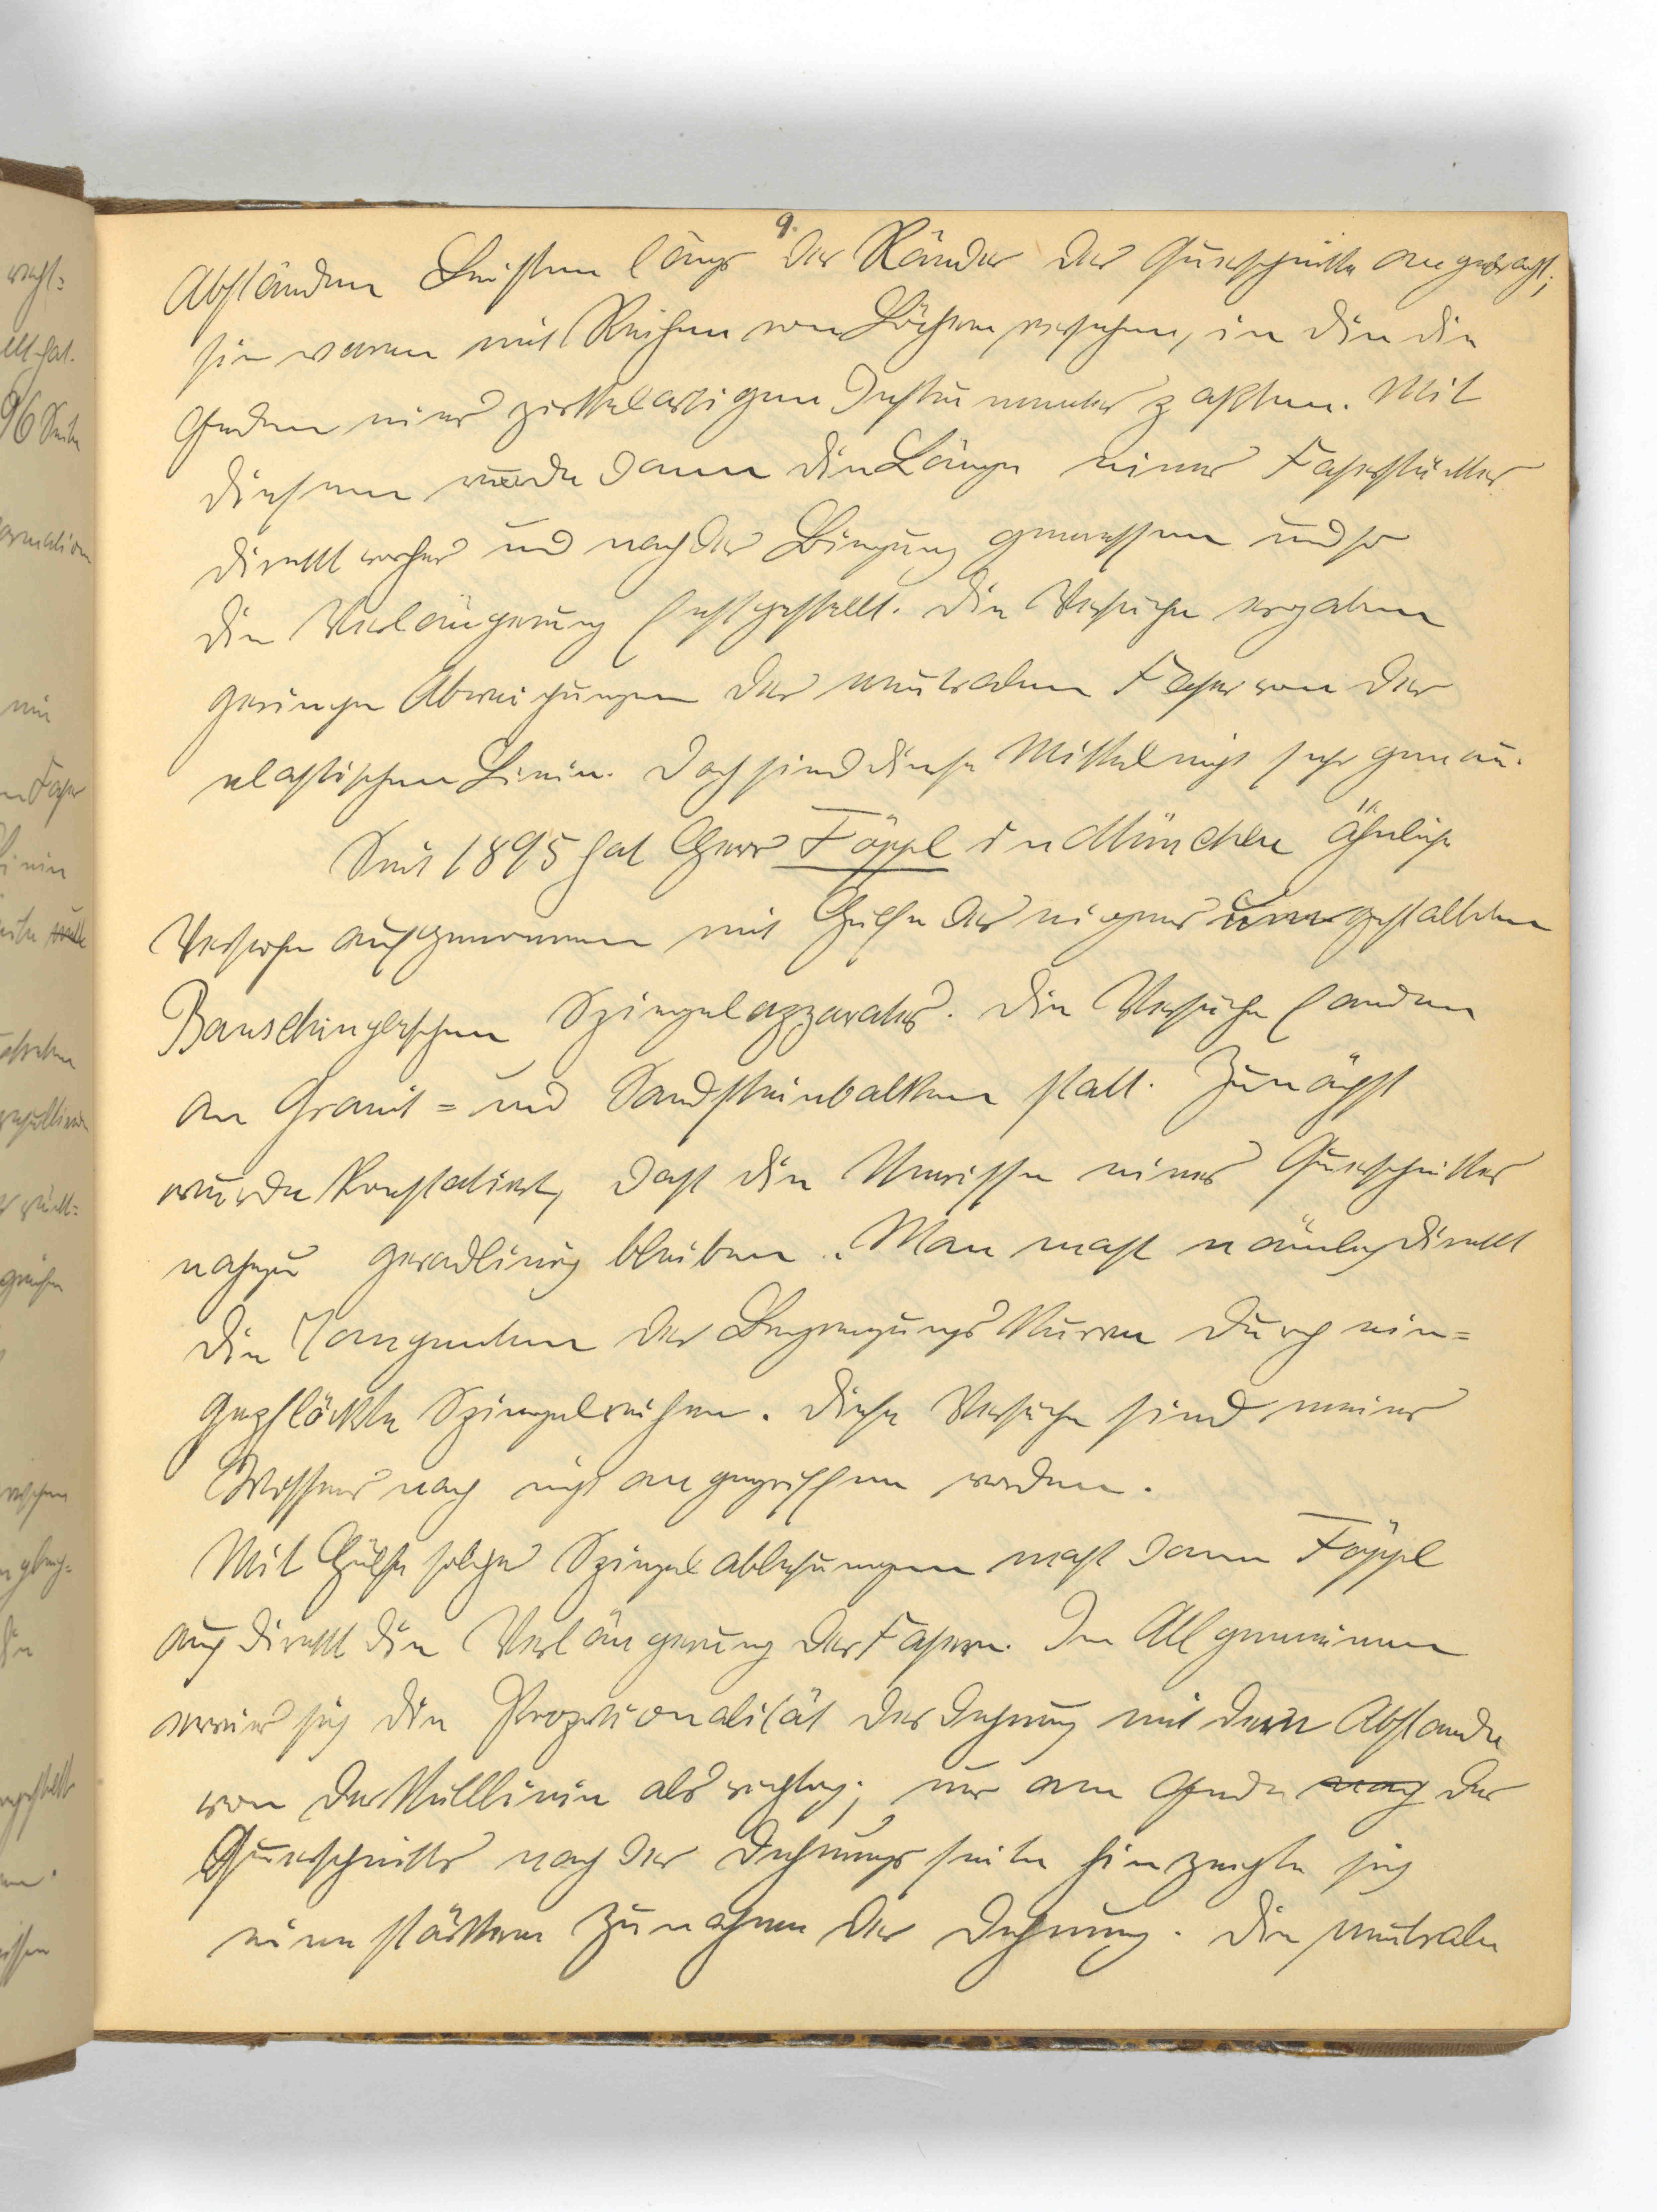 9.
Abständen Leisten längs der Ränder der Querschnitte angebracht;
sie waren mit Reihen von Löchern versehen, in die die
Enden eines zirkelartigen Instrumentes paßten. Mit
diesem wurde dann die Länge eines Faserstückes
direkt vorher und nach der Biegung gemessen und so
die Verlängerung festgestellt. Die Versuche ergaben
geringe Abweichungen der neutralen Faser von der
elastischen Linie. Doch sind diese Mittel nicht sehr genau.
Seit 1895 hat Herr Föppl in München ähnliche
Versuche aufgenommen mit Hülfe des eigens umgestalteten
Bauschingerschen Spiegelapparates. Die Versuche fanden
an Granit= und Sandsteinbalken statt. Zunächst
wurde konstatiert, daß die Umrisse eines Querschnittes
nahezu geradlinig bleiben. Man maß nämlich direkt
die Tangenten der Begrenzungskurven durch ein=
gepflöckte Spiegelreihen. Diese Versuche sind meines
Wissens noch nicht angegriffen worden.
Mit Hülfe solcher Spiegelablesungen maß dann Föppl
auch direkt die Verlängerung der Fasern. Im Allgemeinen
erwies sich die Proportionalität der Dehnung mit dem Abstande
von der Nulllinie als richtig; nur am Ende noch des
Querschnitts nach der Dehnungsseite hin zeigte sich
eine stärkere Zunahme der Dehnung. Die neutrale